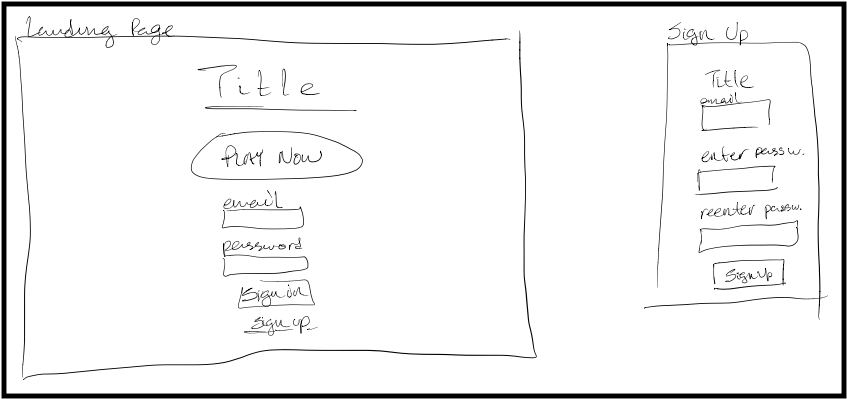 Landing Page
Title
PLAY NOW
email
password
Sign in
Sign up
Sign Up
Title
email
enter passw.
reenter passw.
Sign Up